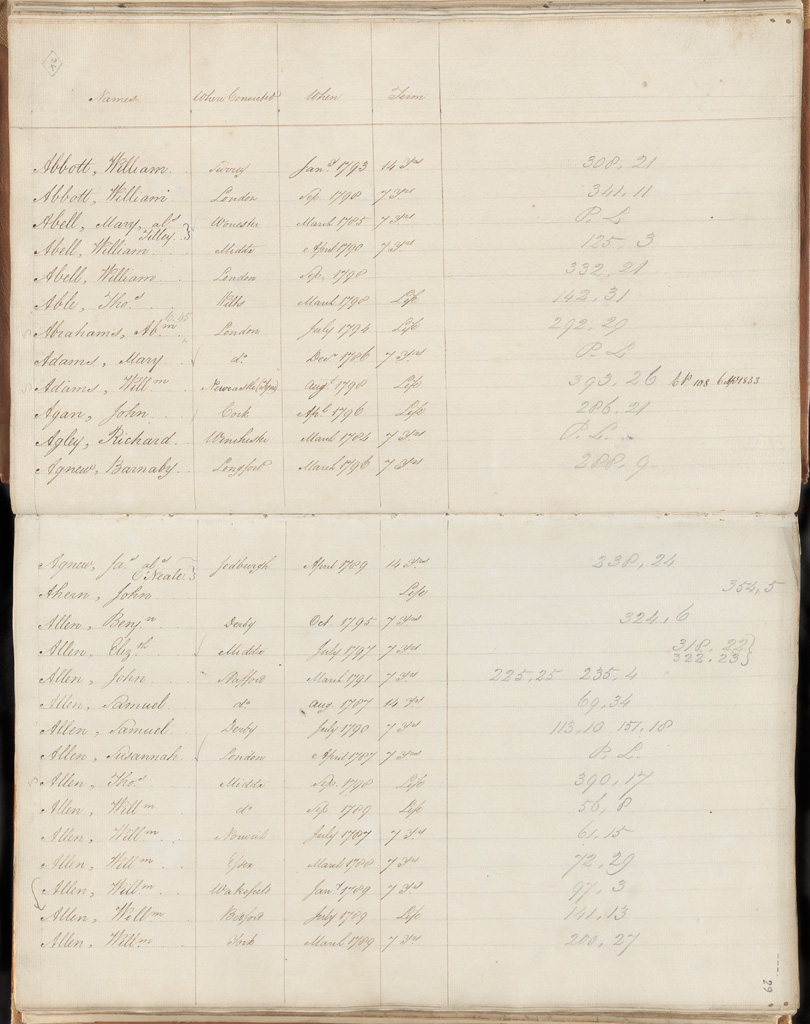 Names When Convicted When Term
Abbott, William Surrey Jan.y 1793 14 Yrs 308, 21
Abbott, William London Sep. 1798 7 Yrs 341, 11
Abell, Mary, als Worcester March 1785 7 Yrs P. L
Tilley }
Abell, William Middx April 1790 7 Yrs 125, 3
Abell, William London Sep. 1798 332, 21
Able, Thos Wilts March 1790 Life 142, 31
Abrahams, Abm London July 1794 Life 292, 29
Adams, Mary do Decr 1786 7 Yrs P. L
Adams, Willm Newcastle, Tyne Augt 1798 Life 393, 26 CP 108 6 Apl 1833
Agan, John Cork Apl 1796 Life 286, 21
Agley, Richard Winchester March 1784 7 Yrs P. L.
Agnew, Barnaby Longford March 1796 7 Yrs 288, 9
Agnew, Jas als Jedburgh April 1789 14 Yrs 238, 24
O'Neale }
Ahern, John Life 354, 5
Allen, Benjn Derby Oct 1795 7 Yrs 324, 6
Allen, Elizth Middx July 1797 7 Yrs 318, 22 }
322, 23 }
Allen, John Stafford March 1791 7 Yrs 225, 25 235, 4
Allen, Samuel do Aug 1787 14 Yrs 69, 34
Allen, Samuel Derby July 1790 7 Yrs 113, 10 151, 18
Allen, Susannah London April 1787 7 Yrs P. L.
Allen, Thos Middx Sep. 1798 Life 390, 17
Allen, Willm do Sep. 1789 Life 56, 8
Allen, Willm Norwich July 1787 7 Yrs 61, 15
Allen, Willm Essex March 1788 7 Yrs 72, 29
Allen, Willm Wakefield Jany 1789 7 Yrs 97, 3
Allen, Willm Bedford July 1789 Life 141, 13
Allen, Willm York March 1789 7 Yrs 200, 27
29